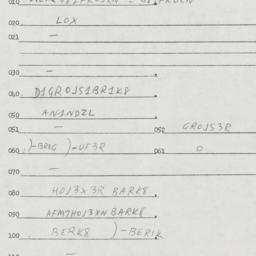 010
020 LOX
021 —
030 —
040 D1GROJS1BR1K8
050 AN1NDZL
051 — 052 GROJS3R
060 )-BRG )-UF3R 061 O
070 —
080 HOJ3X3R BARK8
090 AFM7HOJ3XN BARK8
100 BERK8 )-BERIK
—